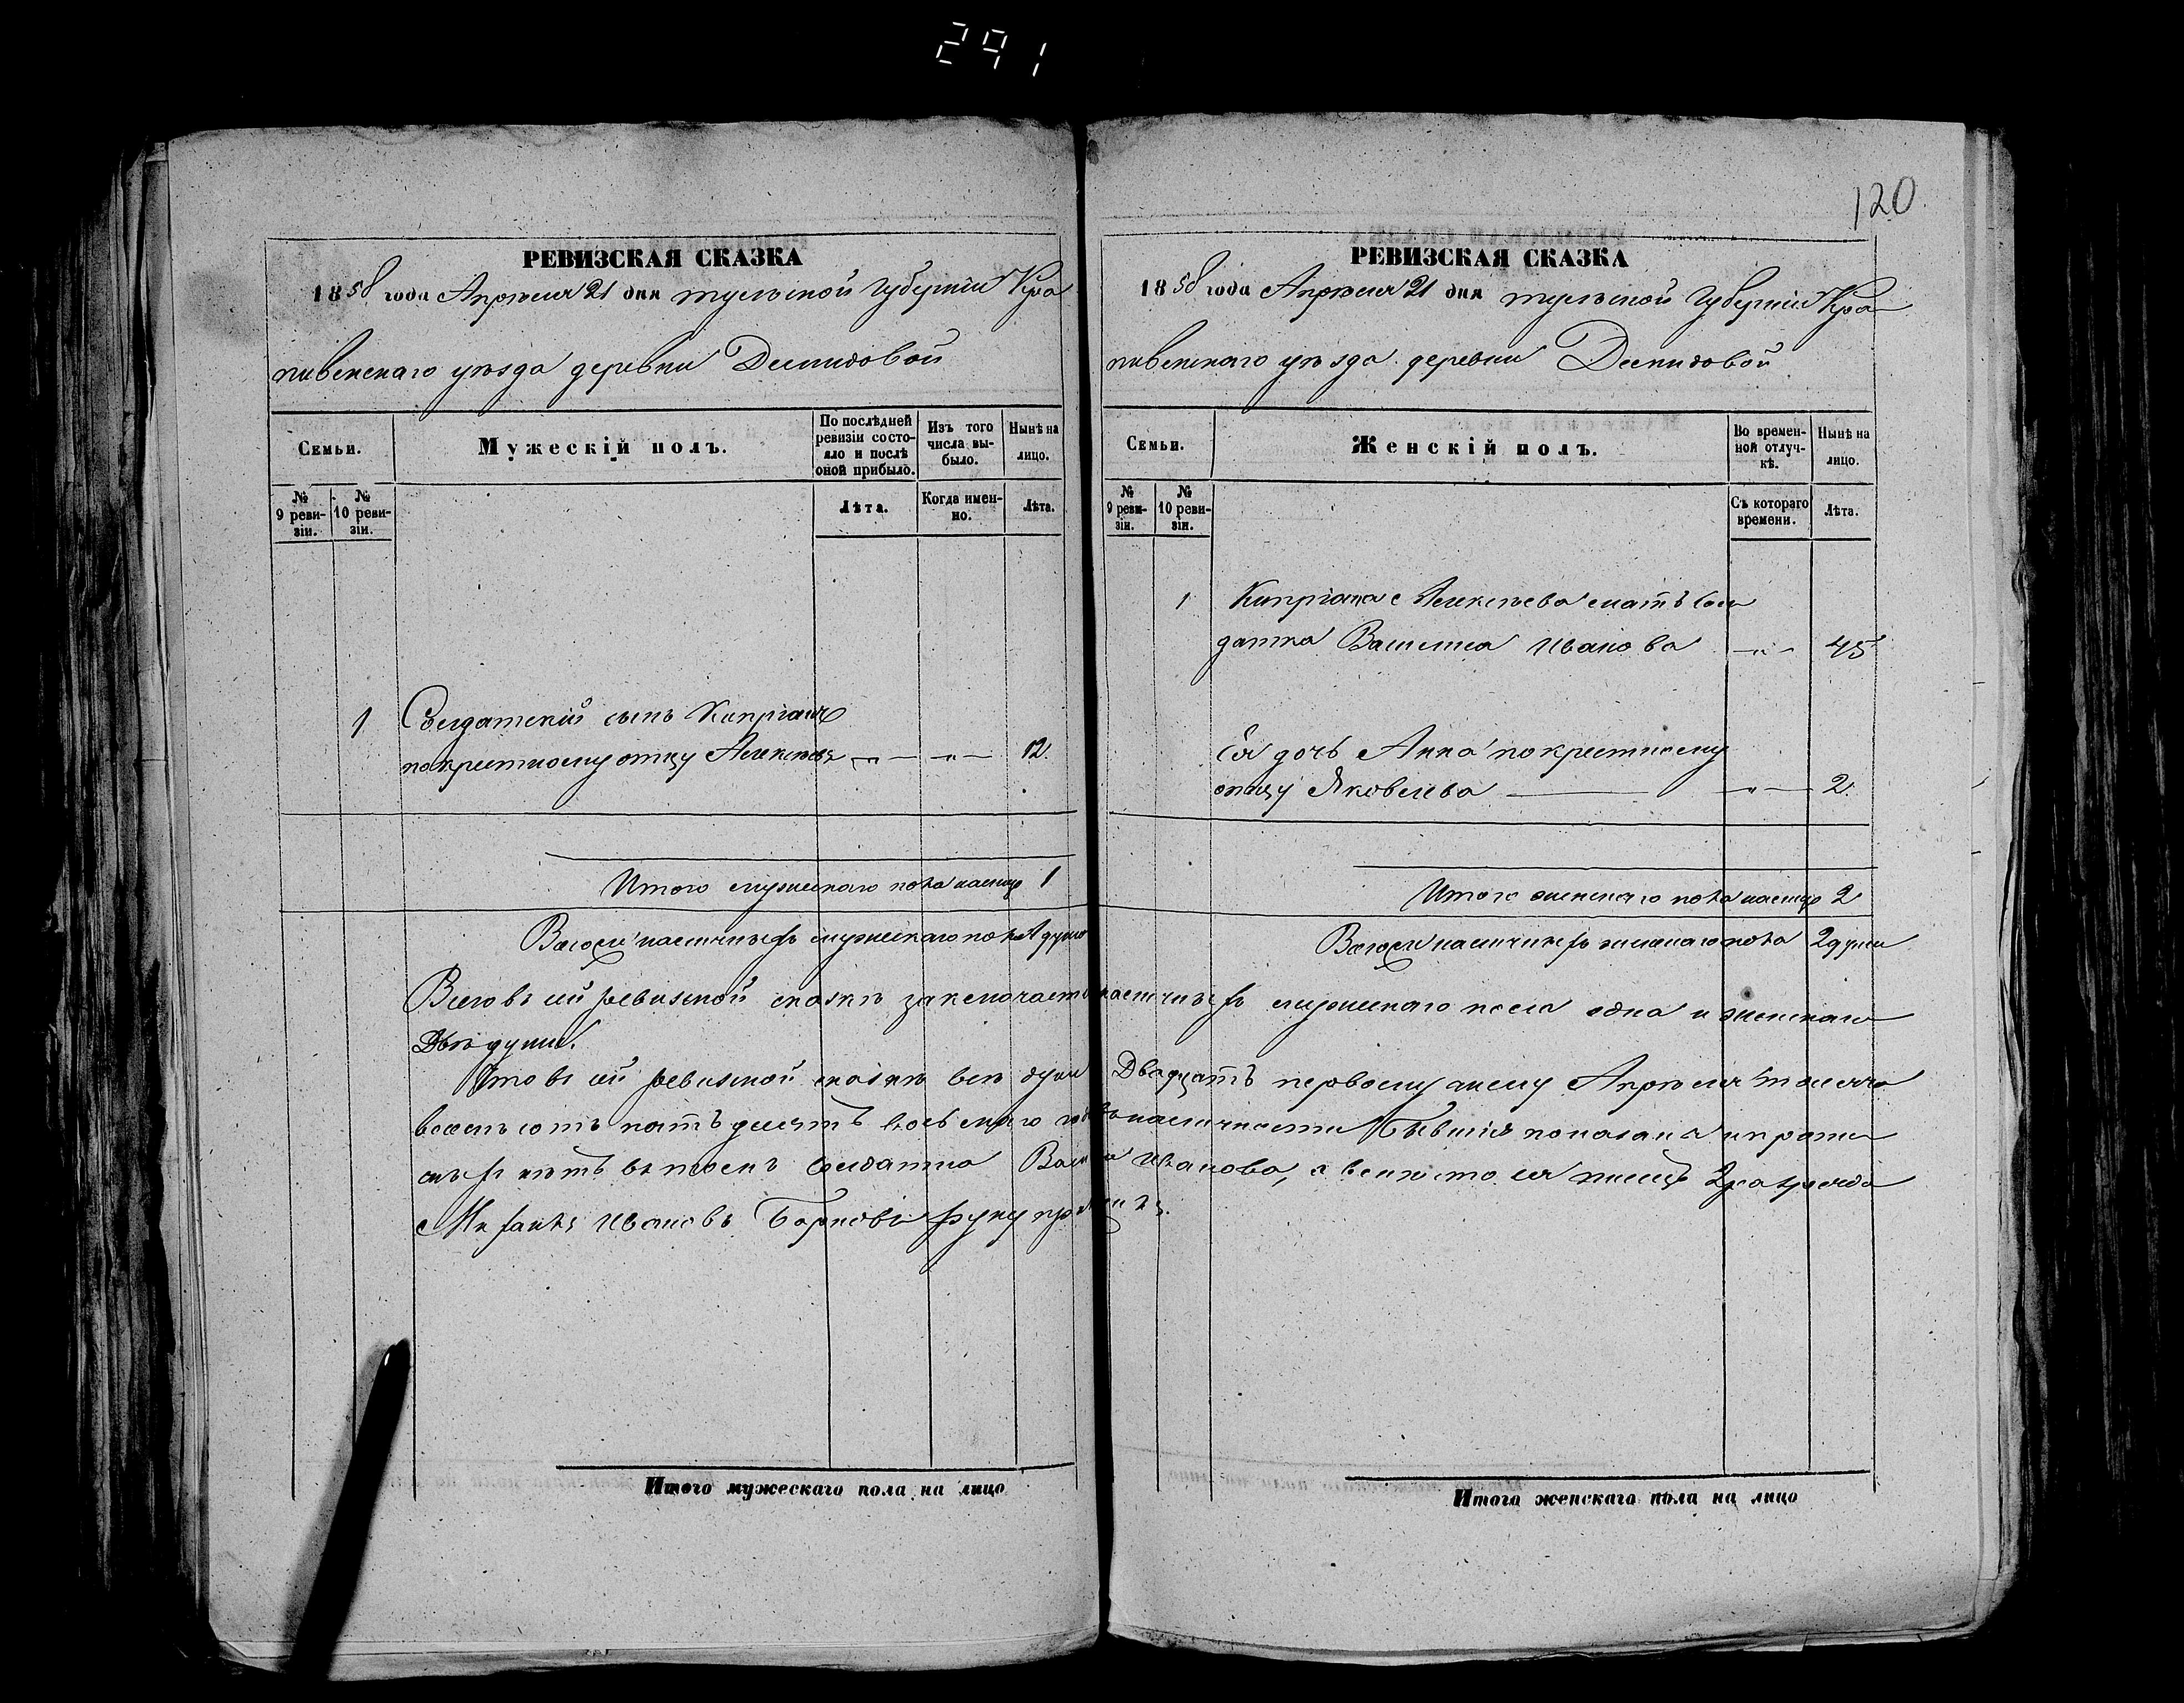 291
120
РЕВИЗСКАЯ СКАЗКА
1858 года Апрѣля 21 дня тульской губерніи Кра
пивенскаго уѣзда деревни Демидовой
Семьи.
Мужескій полъ.
По послѣдней ревизіи состояло и послѣ оной прибыло.
Изъ того числа выбыло.
Нынѣ на лицо.
№ 9 ревизіи.
№ 10 ревизіи.
Лѣта.
Когда именно.
Лѣта.
1 Солдатскій сынъ Кипріанъ
покрестному отцу Алексѣевъ — „ — — „ — 12.
Итого мужескаго пола налицо 1
Всего наличныхъ мужескаго пола 1 душа
РЕВИЗСКАЯ СКАЗКА
1858 года Апрѣля 21 дня тульской губерніи Кра
пивенскаго уѣзда деревни Демидовой
Семьи.
Женскій полъ.
Во временной отлучкѣ.
Нынѣ на лицо.
№ 9 ревизіи.
№ 10 ревизіи.
Съ котораго времени.
Лѣта.
1 Кипріана Алексѣева мать Сол
датка Василиса Иванова — „ — 45
Ея дочь Анна покрестному
отцу Яковлева — „ — 2.
Итого женскаго пола налицо 2
Всего наличныхъ женскаго пола 2 души
Всего въ сей ревизской сказкѣ заключается наличныхъ мужескаго пола одна и женскаго
Двѣ души.
Что въ сей ревизской сказкѣ всѣ души Двадцать первому числу Апрѣля тысяча
восемьсотъ пятьдесятъ восьмаго года наличности Бывшія показаны
нѣтъ въ томъ Солдатка Иванова, а вмѣсто ея
Ивановъ руку приложилъ.
Итого мужескаго пола на лицо
Итого женскаго пола на лицо